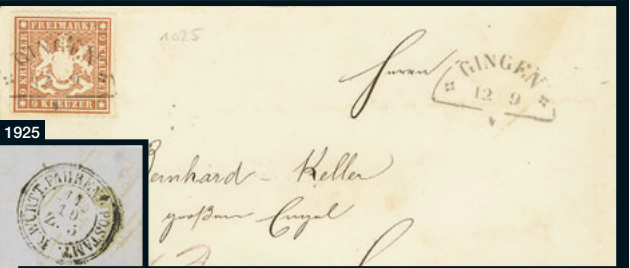 FREIMARKE
9 KREUZER
9 KREUZER
9 KREUZER
GINGEN
1025
Herrn
GINGEN
12 9
1925
Bernhard - Keller
großen Engel
K. WÜRTT. FAHREND. POSTAMT.
11
10
Z. 5